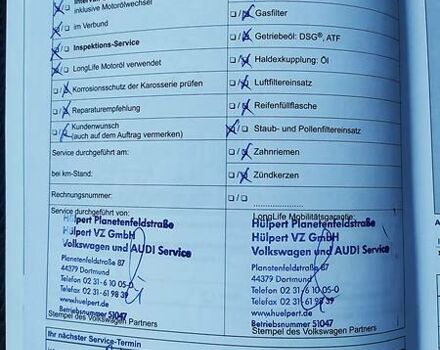 inklusive Motorölwechsel
im Verbund
Inspektions-Service
LongLife Motoröl verwendet
Korrosionsschutz der Karosserie prüfen
Reparaturempfehlung
Kundenwunsch
(auch auf dem Auftrag vermerken)
Service durchgeführt am:
bei km-Stand:
Rechnungsnummer:
Service durchgeführt von:
Hülpert Planetenfeldstraße
Hülpert VZ GmbH
Volkswagen und AUDI Service
Planetenfeldstraße 87
44379 Dortmund
Telefon 02 31-6 10 05-0
Telefax 02 31-61 98 39
www.huelpert.de
Betriebsnummer 51047
Stempel des Volkswagen Partners
Ihr nächster Service-Termin
Gasfilter
Getriebeöl: DSG®, ATF
Haldexkupplung: Öl
Luftfiltereinsatz
Reifenfüllflasche
Staub- und Pollenfiltereinsatz
Zahnriemen
Zündkerzen
LongLife Mobilitätsgarantie:
Hülpert Planetenfeldstraße
Hülpert VZ GmbH
Volkswagen und AUDI Service
Planetenfeldstraße 87
44379 Dortmund
Telefon 02 31-6 10 05-0
Telefax 02 31-61 98 39
www.huelpert.de
Betriebsnummer 51047
Stempel des Volkswagen Partners